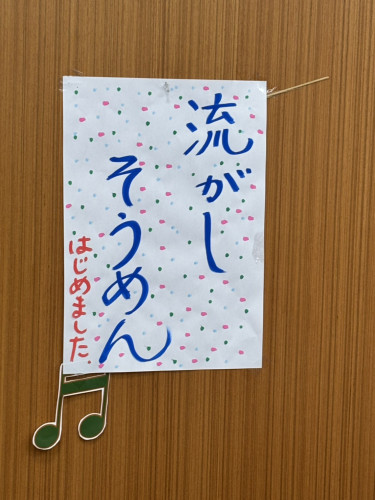 流がし
そうめん
はじめました